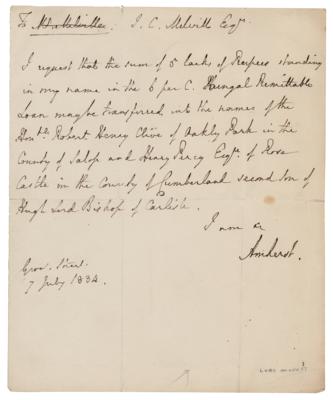 To J. C. Melvill Esqr
I request that the sum of 5 lacks of Rupees standing
in my name in the 6 per C. Bengal Remittable
Loan may be transferred into the names of the
Honble Robert Henry Clive of Oakly Park in the
County of Salop and Henry Percy Esqr of Rose
Castle in the County of Cumberland second son of
Hugh Lord Bishop of Carlisle.
I am
Amherst.
Gros. Street
7 July 1834